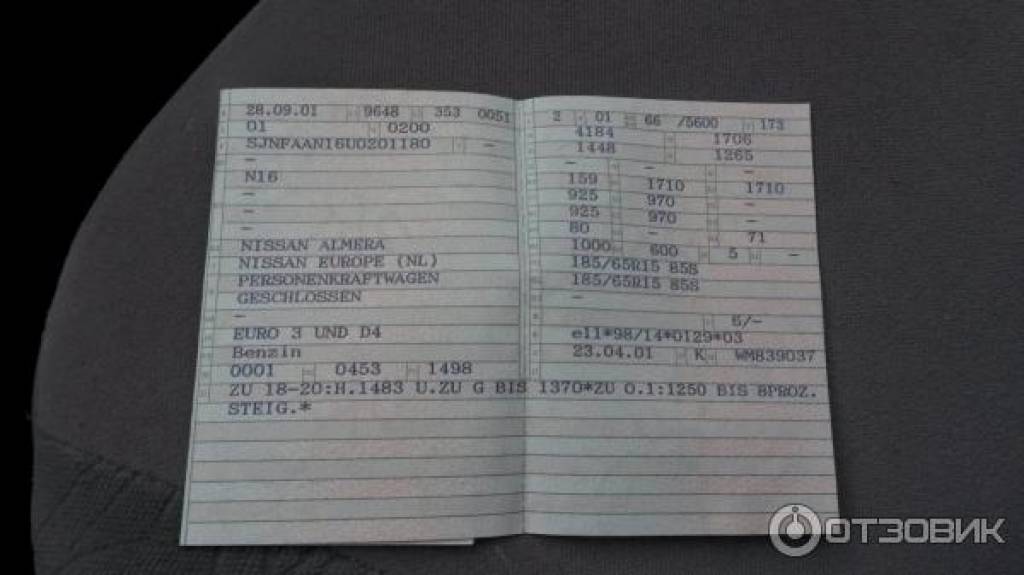 28.09.01 9648 353 0051
01 0200
SJNFAAN16U0201180 -
-
N16
-
-
-
NISSAN ALMERA
NISSAN EUROPE (NL)
PERSONENKRAFTWAGEN
GESCHLOSSEN
-
EURO 3 UND D4
Benzin
0001 0453 1498
2 01 66 /5600 173
4184 1706
1448 1265
- - -
159 1710 1710
925 970 -
925 970 -
80 - 71
1000 600 5 -
185/65R15 85S
185/65R15 85S
-
5/-
e11*98/14*0129*03
23.04.01 K WM839037
ZU 18-20:H.1483 U.ZU G BIS 1370*ZU O.1:1250 BIS 8PROZ.
STEIG.*
ОТЗОВИК